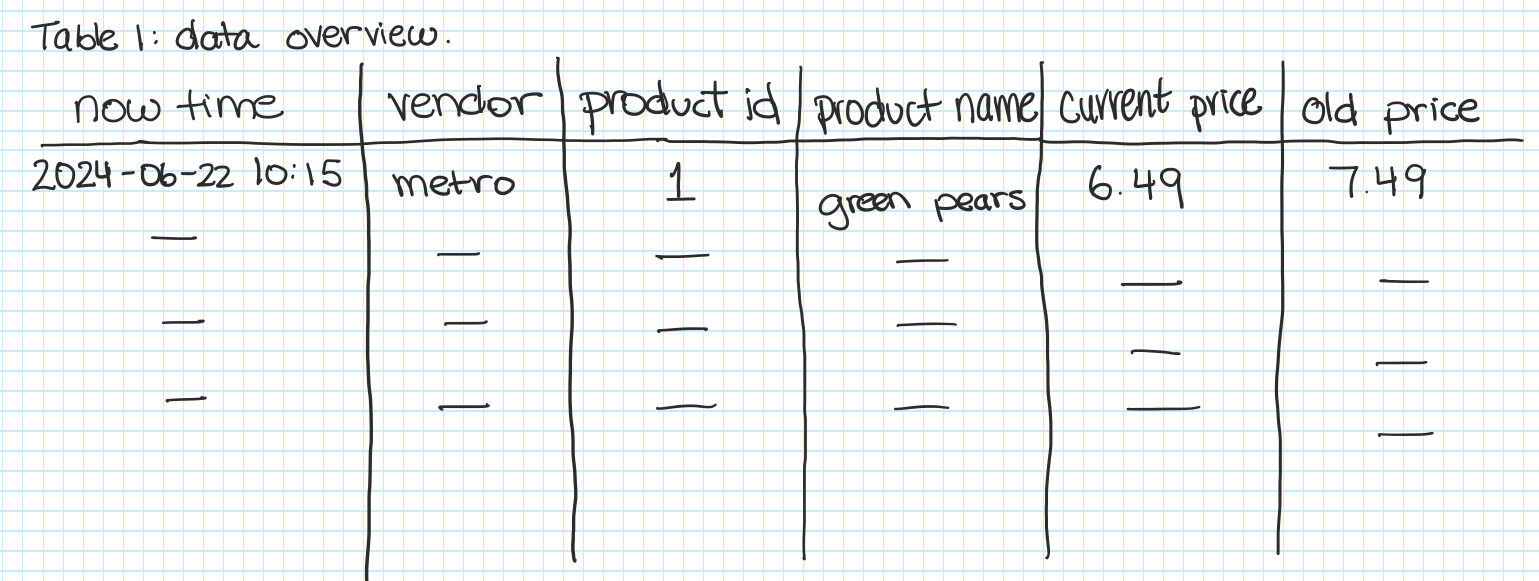 Table 1: data overview.
now time vendor product id product name current price old price
2024-06-22 10:15 metro 1 green pears 6.49 7.49
— — — — — —
— — — — — —
— — — — — —